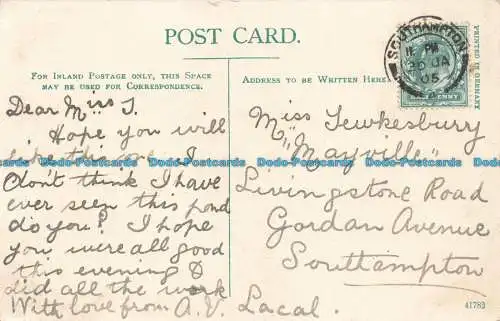 POST CARD.
FOR INLAND POSTAGE ONLY, THIS SPACE
MAY BE USED FOR CORRESPONDENCE.
ADDRESS TO BE WRITTEN HERE
SOUTHAMPTON
11 PM
20 JA
05
HALF PENNY
PRINTED IN GERMANY
Dear Miss T.
Hope you will
like this one. I
don't think I have
ever seen this pond
do you? I hope
you were all good
this evening &
did all the work
With love from A.V. Lacal.
Miss Tewkesbury
"Mayville"
Livingstone Road
Gordan Avenue
Southampton
41783
Dodo-Postcards Dodo-Postcards Dodo-Postcards Dodo-Postcards Dodo-Postcards